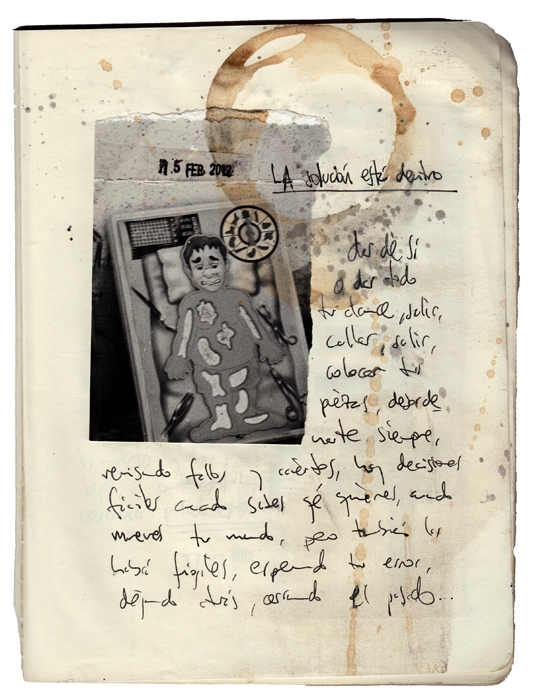 5 FEB 2012
LA solución está dentro
dar de sí
o dar todo
salir,
callar, salir,
colocar tus
piezas,
siempre,
revisando fallos y aciertos, hay decisiones
fáciles cuando sabes qué quieres, cuando
mueves tu mundo, pero también las
habrá frágiles, esperando tu error,
dejando atrás, cerrando el pasado...